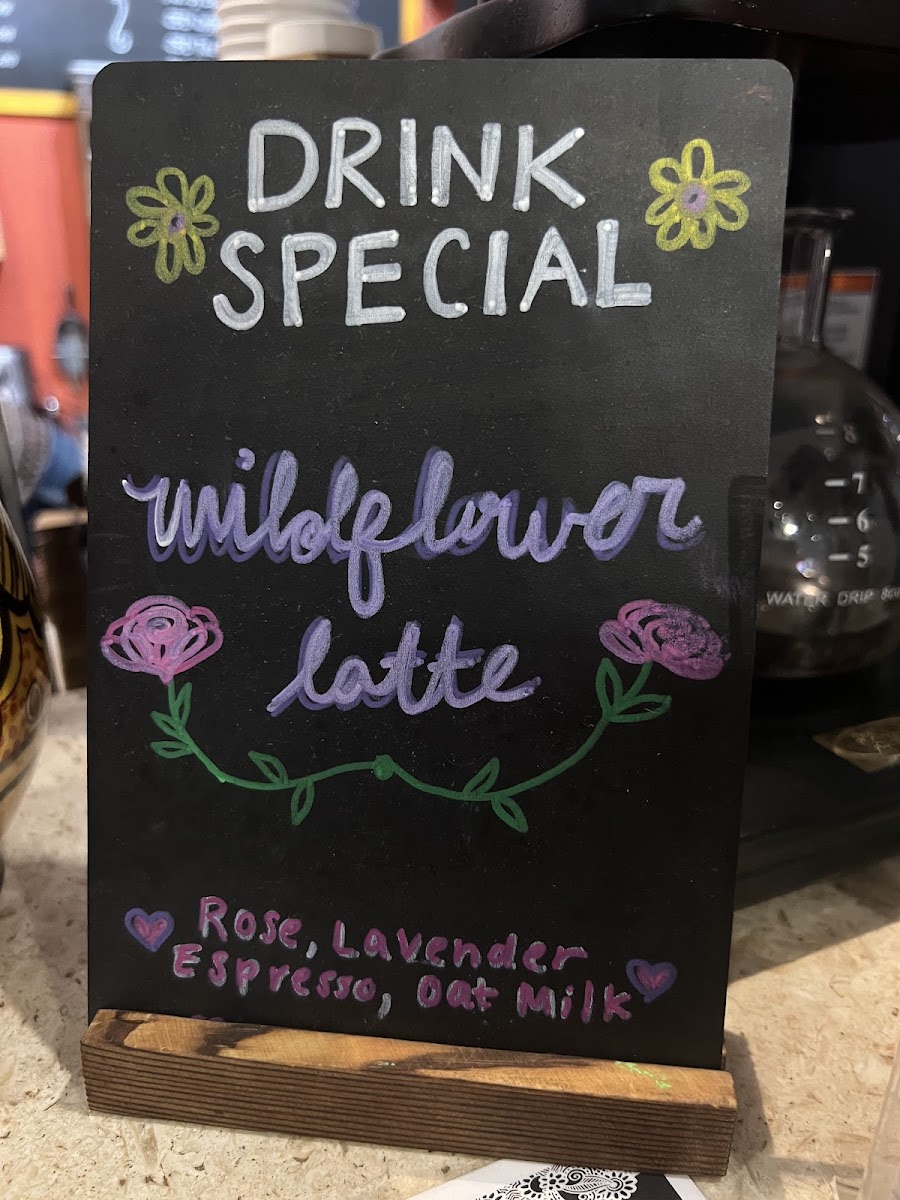 DRINK
SPECIAL
wildflower
latte
Rose, Lavender
Espresso, Oat Milk
8
7
6
5
WATER DRIP